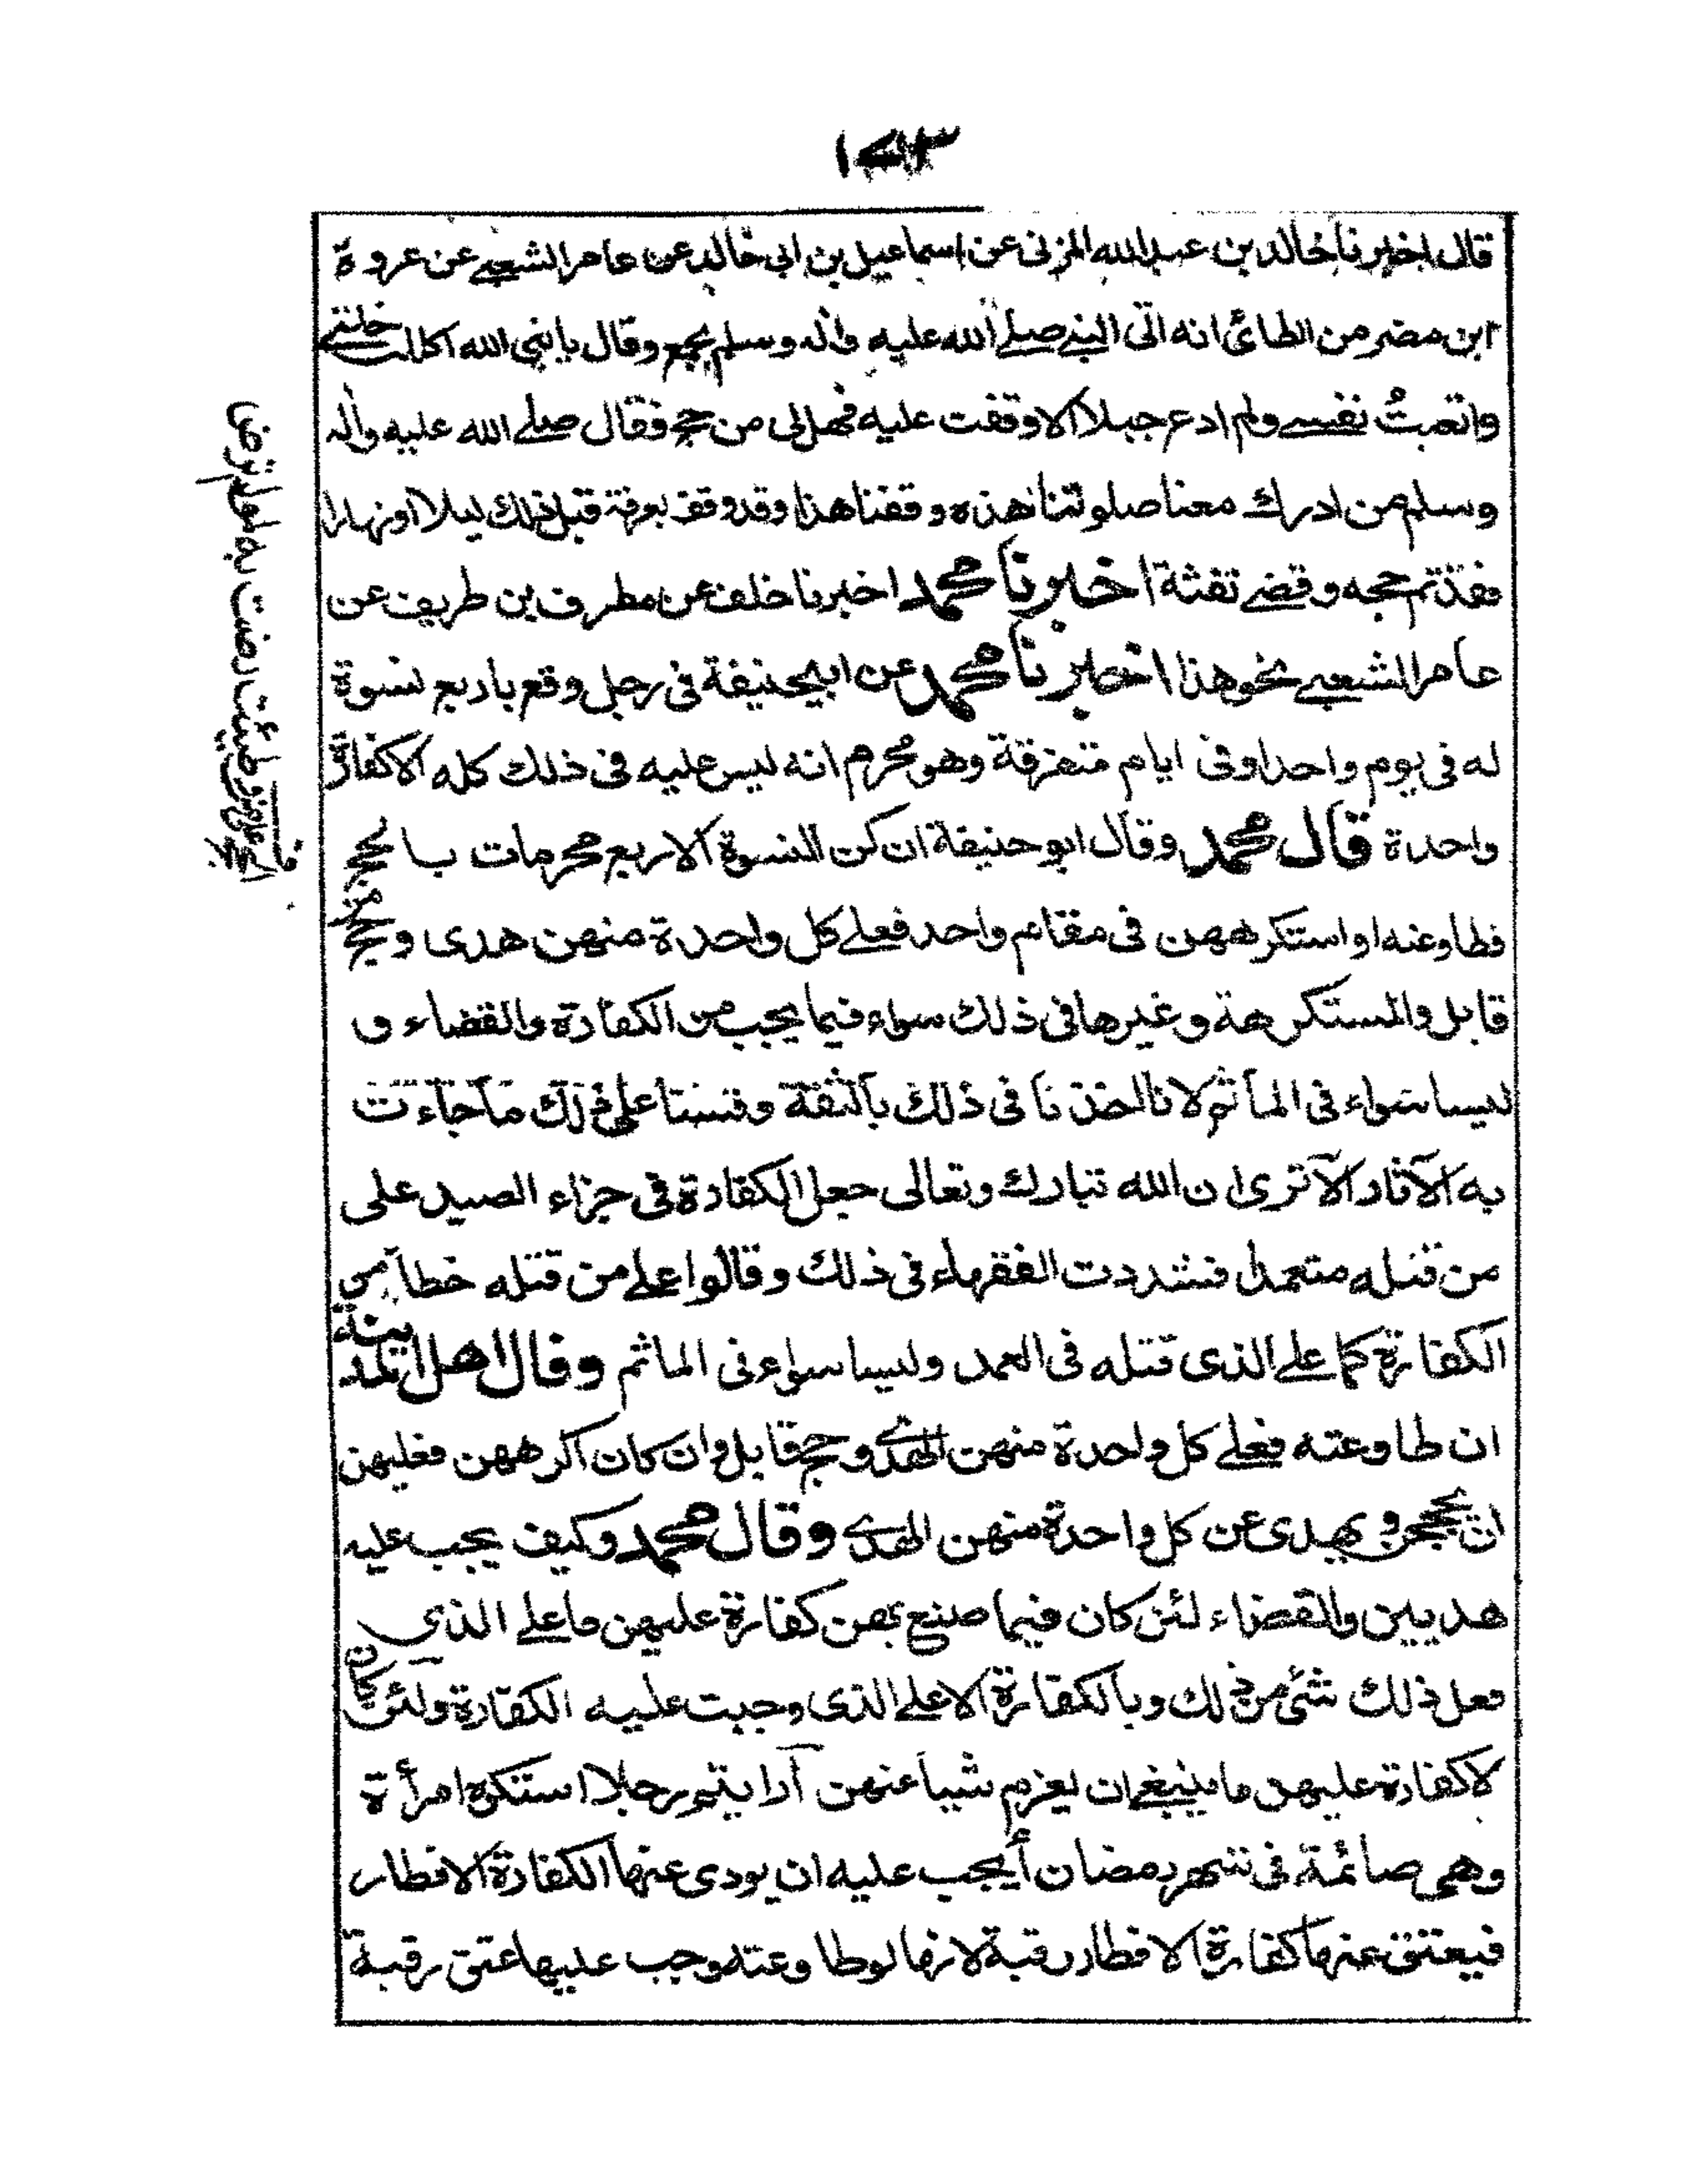 قال اخبرنا خالد بن عبد الله المزنى عن اسماعيل بن ابى خالد عن عامر الشعبي عن عروة
ابن مضر من الطائى انه اتى النبي صلى الله عليه واله وسلم بجمع وقال يا نبي الله اكللت
واتعبتُ نفسي ولم ادع جبلا الا وقفت عليه فهل لى من حج فقال صلے الله عليه واله
وسلم من ادرك معنا صلوتنا هذه وقفنا هذا وقد وقف بعرفة قبل ذلك ليلا اونهارا
فقد تم حجه وقضے تفثة اخبرنا محمد اخبرنا خلف عن مطرف بن طريف عن
عامر الشعبے نحو هذا اخبرنا محمد عن ابيحنيفة فى رجل وقع باربع نسوة
له فى يوم واحد اوفى ايام متفرقة وهو محرم انه ليس عليه فى ذلك كله الا كفارة
واحدة قال محمد وقال ابو حنيفة ان كن النسوة الاربع محرمات بالحج
فطاوعنه او استكرههن فى مقام واحد فعلے كل واحدة منهن هدى وحج من
قابل والمستكرهة وغيرها فى ذلك سواء فيما يجب من الكفارة والقضاء و
ليسا سواء فى المأثم لانا اخذنا فى ذلك بالثقة وقسنا على ذلك ما جاءت
به الآثار الآترى ان الله تبارك وتعالى جعل الكفارة فى جزاء الصيد على
من قتله متعمدا فشددت الفقهاء فى ذلك وقالوا علے من قتله خطأ من
الكفارة كما علے الذى قتله فى العمد وليسا سواء فى الماثم وقال اهل المدينة
ان طاوعته فعلے كل واحدة منهن الهدے وحج قابل وان كان اكرههن فعليهن
ان يحججن ويهدى عن كل واحدة منهن الهدے وقال محمد وكيف يجب عليه
هديين والقضاء لئن كان فيما صنع بهن كفارة عليهن ماعلے الذي
فعل ذلك شئ من ذلك وبالكفارة الا علے الذى وجبت عليه الكفارة ولئن كان
لا كفارة عليهن ما ينبغے ان يغرم شيأ عنهن أرايتم رجلا استكره امرأة
وهى صائمة فى شهر رمضان أيجب عليه ان يودى عنها الكفارة الافطار
فيعتق عنها كفارة الافطار رقبة لانها لو طاوعته وجب عليها عتق رقبة